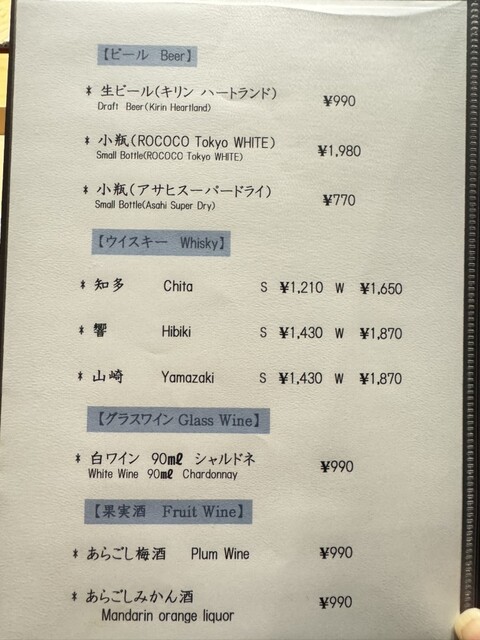 【ビール Beer】
* 生ビール(キリン ハートランド) ¥990
Draft Beer(Kirin Heartland)
* 小瓶(ROCOCO Tokyo WHITE) ¥1,980
Small Bottle(ROCOCO Tokyo WHITE)
* 小瓶(アサヒスーパードライ) ¥770
Small Bottle(Asahi Super Dry)
【ウイスキー Whisky】
* 知多 Chita S ¥1,210 W ¥1,650
* 響 Hibiki S ¥1,430 W ¥1,870
* 山崎 Yamazaki S ¥1,430 W ¥1,870
【グラスワイン Glass Wine】
* 白ワイン 90㎖ シャルドネ ¥990
White Wine 90㎖ Chardonnay
【果実酒 Fruit Wine】
* あらごし梅酒 Plum Wine ¥990
* あらごしみかん酒 ¥990
Mandarin orange liquor